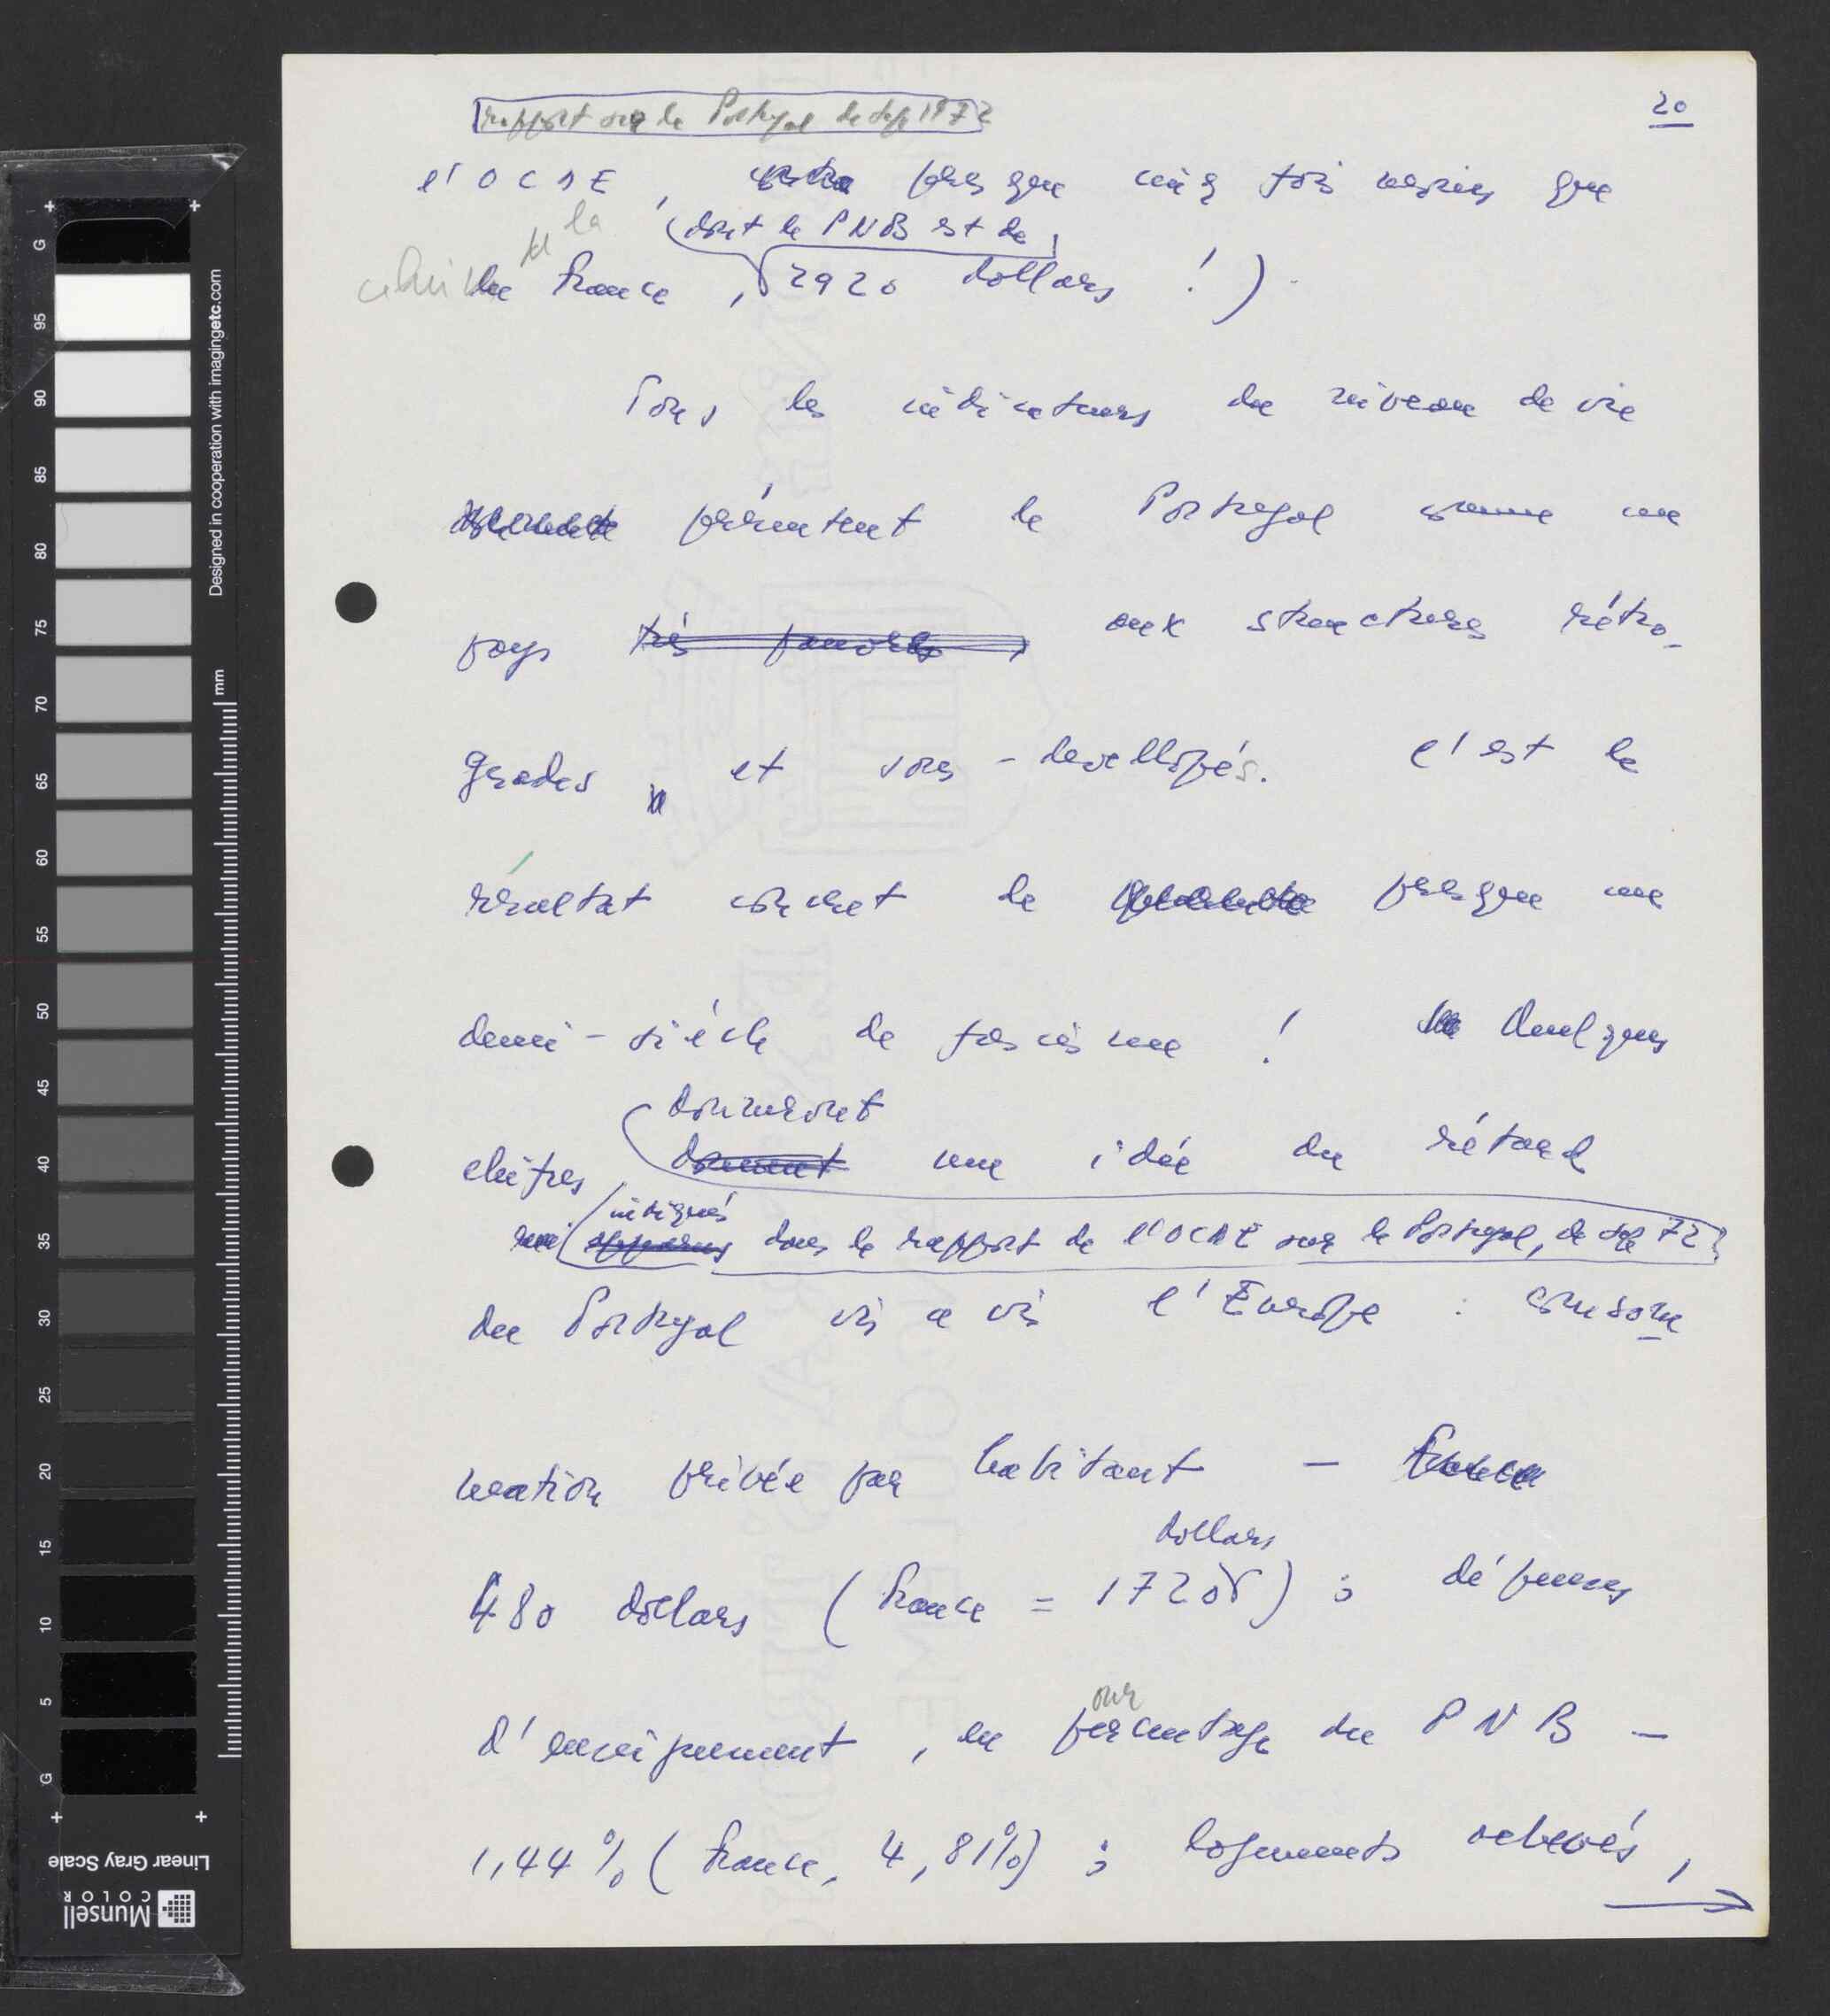 20
rapport sur le Portugal de sept 1972
l'OCDE, presque cinq fois moins que
la
(dont le PNB est de
celui de France, 2920 dollars !)
Tous les indicateurs du niveau de vie
présentent le Portugal comme un
pays très pauvre, aux structures rétro-
grades et sous-devellopés. C'est le
résultat concret de presque un
demi-siècle de fascisme ! Quelques
donneront
chifres donnent une idée du rétard
indiqués
dans le rapport de l'OCDE sur le Portugal, de sept 72
du Portugal vis a vis l'Europe : consom
mation privée par habitant - France
dollars
480 dollars (France = 1720) ; dépenses
our
d'enseignement, en percentage du PNB -
1,44% (France, 4,81%) ; logements achevés,
G
95
90
85
80
75
70
65
60
55
50
45
40
35
30
25
20
15
10
5
G
mm
Designed in cooperation with imagingetc.com
Linear Gray Scale
Munsell
COLOR